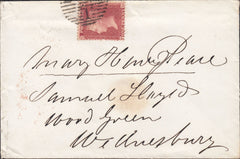 Mary Henry Pease
Samuel Lloyd's
Wood Green
Wednesbury